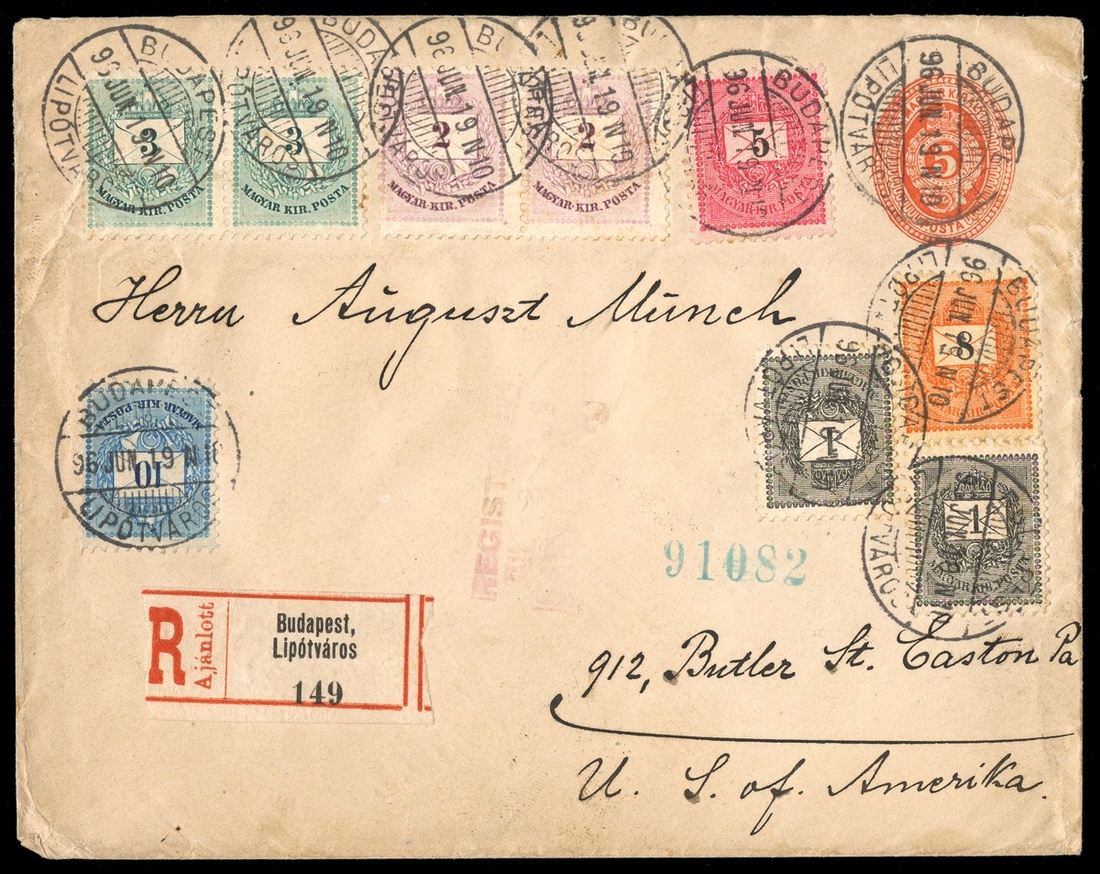 BUDAPEST 96 JUN 19 N 10 LIPÓTVÁROS
3 MAGYAR KIR. POSTA
3 MAGYAR KIR. POSTA
2 MAGYAR KIR. POSTA
2 MAGYAR KIR. POSTA
5 MAGYAR KIR. POSTA
5 POSTA
Herrn Auguszt Münch
8
1
1 MAGYAR KIR. POSTA
MAGYAR KIR. POSTA 10
BUDAPEST
96 JUN 19 N 10
LIPÓTVÁROS
REGIST
91082
R Ajánlott
Budapest,
Lipótváros
149
912, Butler St. Easton Pa
U. S. of. Amerika.